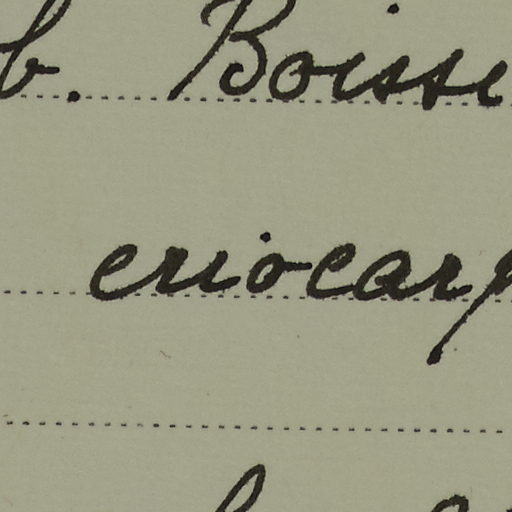 b. Boissi
eriocarp